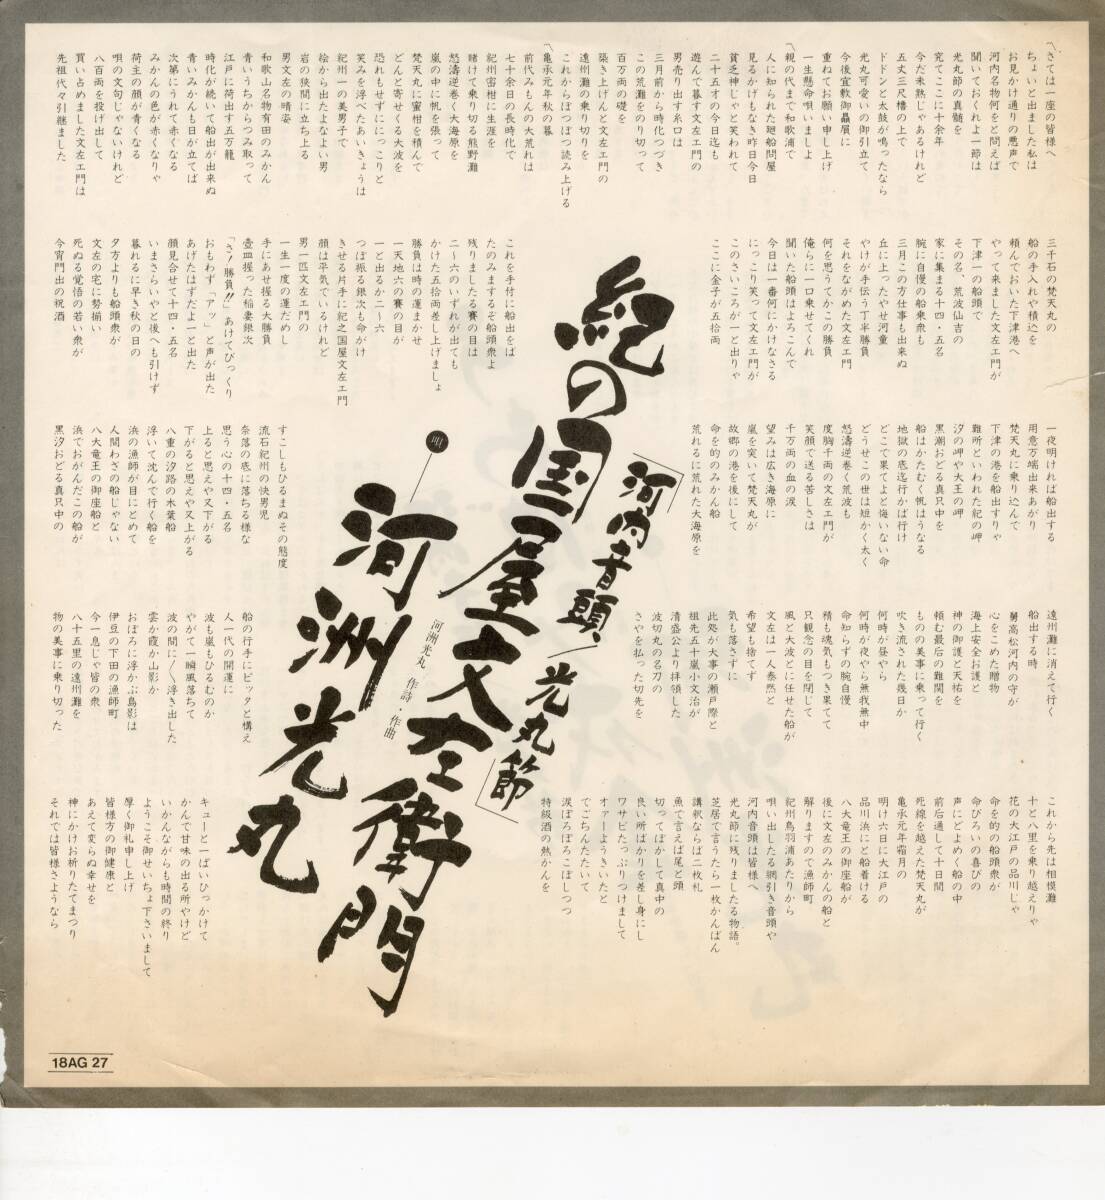 河内音頭/光丸節
紀の国屋文左衛門
唄・河洲光丸
河洲光丸 作詩・作曲
〽さては一座の皆様へ
ちょいと出ました私は
お見かけ通りの悪声で
河内名物何をと問えば
聞いておくれよ一節は
光丸節の真髄を
究てここに十余年
今だ未熟じゃあるけれど
五丈三尺櫓の上で
ドドンと太鼓が鳴ったなら
光丸可愛いの御引立て
今後宜敷御贔屓に
重ねてお願い申し上げ
一生懸命唄いましよ
〽親の代まで和歌浦で
人に知られた廻船問屋
見るかげもなき昨日今日
貧乏神じゃと笑われて
二十五才の今日迄も
遊んで暮す文左エ門の
男売り出す糸口は
三月前から時化つづき
この荒灘をのり切って
百万両の礎を
築き上げんと文左エ門の
遠州灘の乗り切りを
これからぼつぼつ読み上げる
〽亀承元年秋の暮
前代みもんの大荒れは
七十余日の長時化で
紀州密柑に生涯を
賭けて乗り切る熊野灘
怒濤逆巻く大海原を
嵐の中に帆を張って
梵天丸に蜜柑を積んで
どんと寄せくる大波を
恐れもせずににっこりと
笑みを浮べたあいきょうは
紀州一の美男子で
桧から出たよなよい男
岩の狭間に立ち上る
男文左の晴姿
和歌山名物有田のみかん
青いうちからつみ取って
江戸に荷出す五万籠
時化が続いて船出が出来ぬ
青いみかんも日が立てば
次第にうれて赤くなる
みかんの色が赤くなりゃ
荷主の顔が青くなる
唄の文句じゃないけれど
八百両を投げ出して
買い占めました文左エ門は
先祖代々引継ました
三千石の梵天丸の
船の手入れや積込を
頼んでおいた下津港へ
やって来ました文左エ門が
下津一の船頭で
その名、荒波仙吉の
家に集まる十四・五名
腕に自慢の船乗衆も
三月この方仕事も出来ぬ
丘に上ったやせ河童
やけが手伝う丁半勝負
それをながめた文左エ門
何を思うてかこの勝負
俺らに一口乗せてくれ
聞いた船頭はよろこんで
今日は一番何にかけなさる
にっこり笑って文左エ門が
このさいころが一と出りゃ
ここに金子が五拾両
これを手付に船出をば
たのみまするぞ船頭衆よ
残りましたる賽の目は
二～六のいずれが出ても
かけた五拾両差し上げましょ
勝負は時の運まかせ
一天地六の賽の目が
一と出るか二～六
つぼ振る銀次も命がけ
きせる片手に紀之国屋文左エ門
顔は平気でいるけれど
男一匹文左エ門の
一生一度の運だめし
手にあせ握る大勝負
壷皿握った稲妻銀次
「さァ勝負!!」あけてびっくり
おもわず「アッ」と声が出た
あげたはずだよ一と出た
顔見合せて十四・五名
いまさらいやと後へも引けず
暮れるに早き秋の日の
夕方よりも船頭衆が
文左の宅に勢揃い
死ぬる覚悟の若い衆が
今宵門出の祝酒
一夜明ければ船出する
用意万端出来あがり
梵天丸に乗り込んで
下津の港を船出すりゃ
難所といわれた紀の岬
汐の岬や大王の岬
黒潮おどる真只中を
船はかたむく帆はうなる
地獄の底迄行かば行け
どこで果てよと悔いない命
どうせこの世は短かく太く
怒濤逆巻く荒波も
度胸千両の文左エ門が
笑顔で送る苦しさは
千万両の血の涙
望みは広き海原に
嵐を突いて梵天丸が
故郷の港を後にして
命を的のみかん船
荒れるに荒れた大海原を
すこしもひるまぬその態度
流石紀州の快男児
奈落の底に落ちる様な
思う心の十四・五名
上ると思えや又下がる
下がると思えや又上がる
八重の汐路の木葉船
浮いて沈んで行く船を
浜の漁師が目にとめて
人間わざの船じゃない
八大竜王の御座船と
浜でおがんだこの船が
黒汐おどる真只中の
遠州灘に消えて行く
船出する時
舅高松河内の守が
心をこめた贈物
海上安全お護と
神の御護と天祐を
頼む最后の難関を
ものの美事に乗って行く
吹き流された幾日か
何時が昼やら
何時が夜やら無我無中
命知らずの腕自慢
精も魂気もつき果てて
只観念の目を閉じて
風と大波とに任せた船が
文左は一人泰然と
希望も捨てず
気も落さずに
此処が大事の瀬戸際と
祖先五十嵐小文治が
清盛公より拝領した
波切丸の名刀の
さやを払った切先を
船の行手にピッタと構え
人一代の開運に
波も嵐もひるむのか
やがて一瞬風落ちて
波の間に〱浮き出した
雲か霞か山影か
おぼろに浮かぶ島影は
伊豆の下田の漁師町
今一息じゃ皆の衆
八十五里の遠州灘を
物の美事に乗り切った
これから先は相模灘
十と八里を乗り越えりゃ
花の大江戸の品川じゃ
命を的の船頭衆が
命びろいの喜びの
声にどよめく船の中
前后通して十日間
死線を越えた梵天丸が
亀承元年霜月の
明け六日に大江戸の
品川浜にと船着ける
八大竜王の御座船が
後に文左のみかんの船と
解りますので漁師町
紀州鳥羽浦あたりから
唄い出したる網引き音頭や
河内音頭は皆様へ
光丸節に残りましたる物語。
芝居で言うたら一枚かんばん
講釈ならば二枚札
魚で言えば尾と頭
切ってぼかして真中の
良い所ばかりを差し身にし
ワサビたっぷりつけまして
オァーようきいたと
でこちんたたいて
涙ぼろぼろこぼしつつ
特級酒の熱かんを
キューと一ぱいひっかけて
かんで甘味の出る所やけど
いかんながらも時間の終り
ようこそ御せいちょ下さいまして
厚く御礼申し上げ
皆様方の御健康と
あえて変らぬ幸せを
神にかけお祈りたてまつり
それでは皆様さようなら
18AG 27